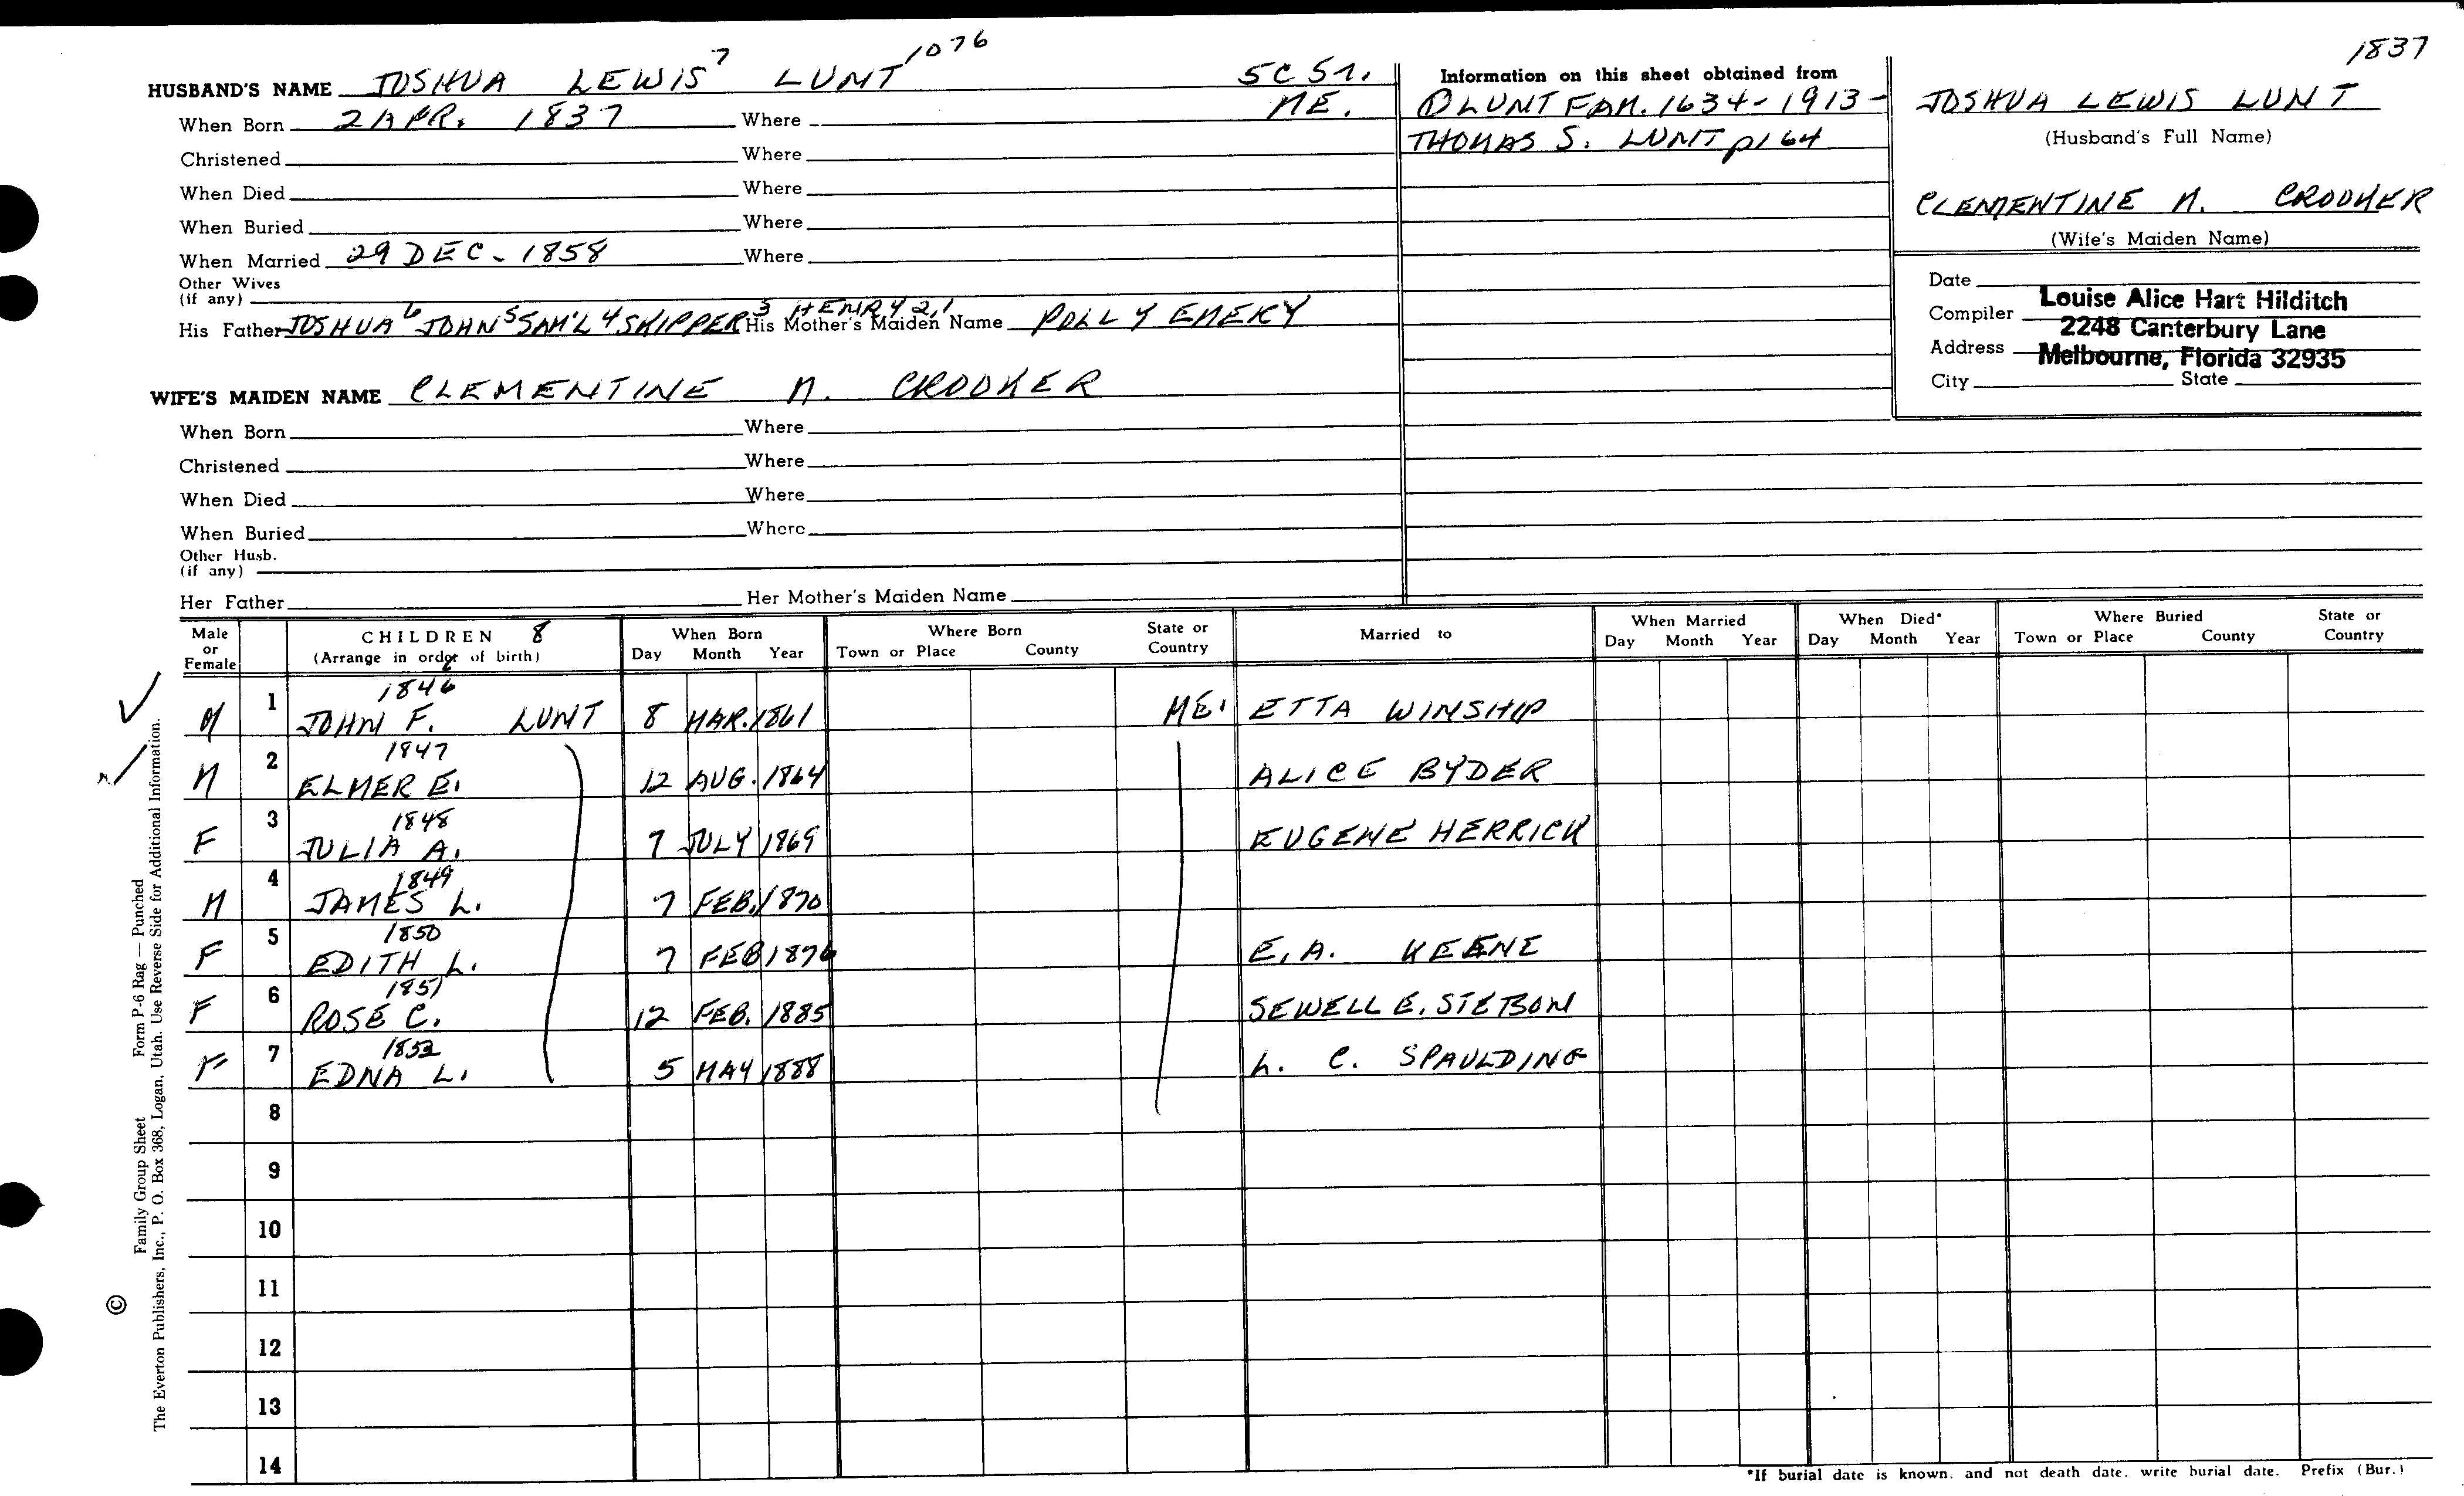 1837
HUSBAND'S NAME JOSHUA LEWIS 7 LUNT 1076
When Born 2 APR. 1837 Where
5C51.
ME.
Christened Where
When Died Where
When Buried Where
When Married 29 DEC - 1858 Where
Other Wives
(if any)
His Father JOSHUA 6 JOHN 5 SAM'L 4 SKIPPER 3 HENRY 2,1 His Mother's Maiden Name POLLY EMERY
WIFE'S MAIDEN NAME CLEMENTINE M. CROOKER
When Born Where
Christened Where
When Died Where
When Buried Where
Other Husb.
(if any)
Her Father Her Mother's Maiden Name
Information on this sheet obtained from
① LUNT FAM. 1634-1913-
THOMAS S. LUNT p164
JOSHUA LEWIS LUNT
(Husband's Full Name)
CLEMENTINE M. CROOKER
(Wife's Maiden Name)
Date
Compiler Louise Alice Hart Hilditch
Address 2248 Canterbury Lane
Melbourne, Florida 32935
City State
Male or Female CHILDREN 8 (Arrange in order of birth) When Born Day Month Year Where Born Town or Place County State or Country Married to When Married Day Month Year When Died* Day Month Year Where Buried Town or Place County State or Country
1846
M 1 JOHN F. LUNT 8 MAR. 1861 ME. ETTA WINSHIP
1847
M 2 ELMER E. 12 AUG. 1864 ALICE BYDER
1848
F 3 JULIA A. 7 JULY 1869 EUGENE HERRICK
1849
M 4 JAMES L. 7 FEB. 1870
1850
F 5 EDITH L. 7 FEB 1876 E. A. KEENE
1851
F 6 ROSE C. 12 FEB. 1885 SEWELL E. STETSON
1852
F 7 EDNA L. 5 MAY 1888 L. C. SPAULDING
8
9
10
11
12
13
14
*If burial date is known, and not death date, write burial date. Prefix (Bur.)
© Family Group Sheet Form P-6 Rag — Punched
The Everton Publishers, Inc., P. O. Box 368, Logan, Utah. Use Reverse Side for Additional Information.